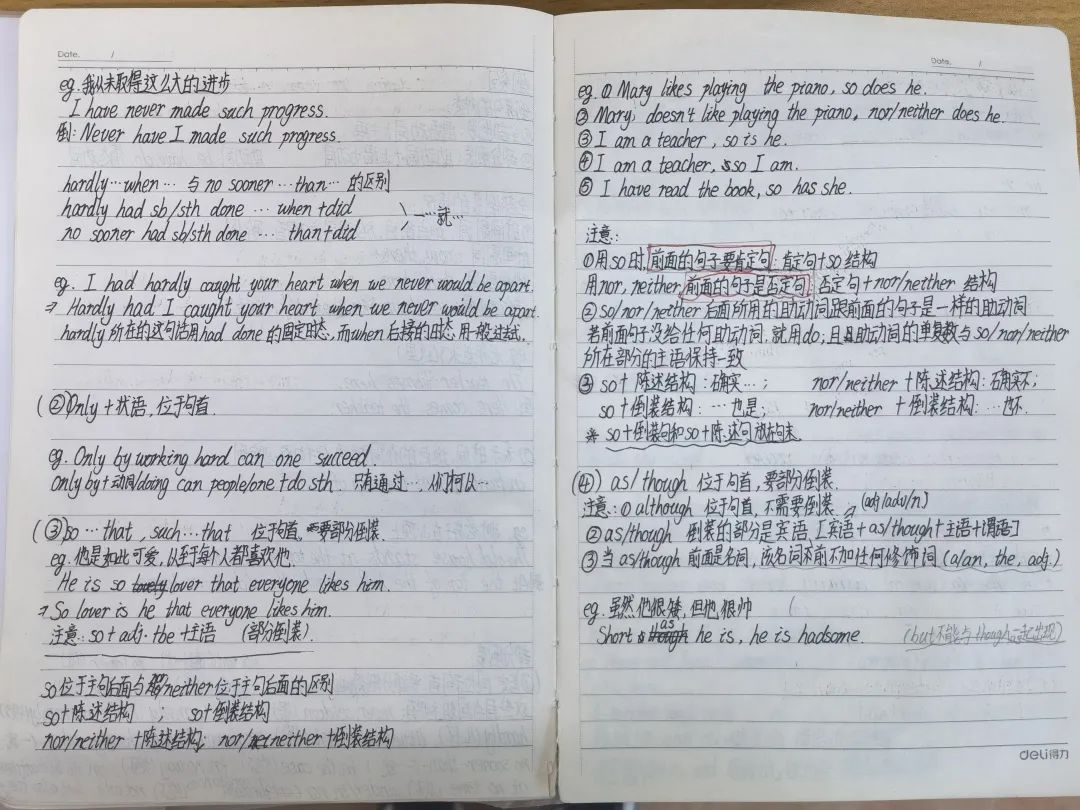 Date. /
eg. 我从未取得这么大的进步
I have never made such progress.
倒: Never have I made such progress.
hardly…when… 与 no sooner …than… 的区别
hardly had sb/sth done … when +did
no sooner had sb/sth done … than+did
一…就…
eg. I had hardly caught your heart when we never would be apart.
→ Hardly had I caught your heart when we never would be apart.
hardly 所在的这句话用had done 的固定时态,而when 后接的时态,用一般过去式.
(②) Only + 状语, 位于句首.
eg. Only by working hard can one succeed.
Only by + 动词/doing can people/one +do sth. 只有通过… 人们才可以…
(③) so …that, such…that 位于句首, 要部分倒装.
eg. 他是如此可爱, 以至于每个人都喜欢他.
He is so lover that everyone likes him.
→ So lover is he that everyone likes him.
注意: so + adj. +be +主语 (部分倒装).
so 位于主句后面与 /neither 位于主句后面的区别
so+陈述结构 ; so+倒装结构
nor/neither +陈述结构; nor/neither +倒装结构
Date. /
eg. ① Mary likes playing the piano, so does he.
② Mary doesn't like playing the piano, nor/neither does he.
③ I am a teacher, so is he.
④ I am a teacher, so I am.
⑤ I have read the book, so has she.
注意:
①用 so 时, 前面的句子要肯定句: 肯定句+so 结构
用nor, neither, 前面的句子是否定句: 否定句+nor/neither 结构
② so/nor/neither 后面所用的助动词跟前面的句子是一样的助动词
若前面句子没给任何助动词, 就用do; 且助动词的单复数与 so/nor/neither
所在部分的主语保持一致
③ so+ 陈述结构: 确实…; nor/neither +陈述结构: 确实不;
so +倒装结构: …也是; nor/neither +倒装结构: …也不.
※ so+倒装句和so+陈述句放在句末.
(④) as/though 位于句首, 要部分倒装.
注意: ① although 位于句首, 不需要倒装. (adj/adv/n)
② as/though 倒装的部分是宾语. [宾语+as/though+主语+谓语]
③ 当 as/though 前面是名词, 该名词前不加任何修饰词 (a/an, the, adj.)
eg. 虽然他很矮, 但他很帅 (
Short as he is, he is hadsome. (but 不能与 though 一起出现)
deli得力